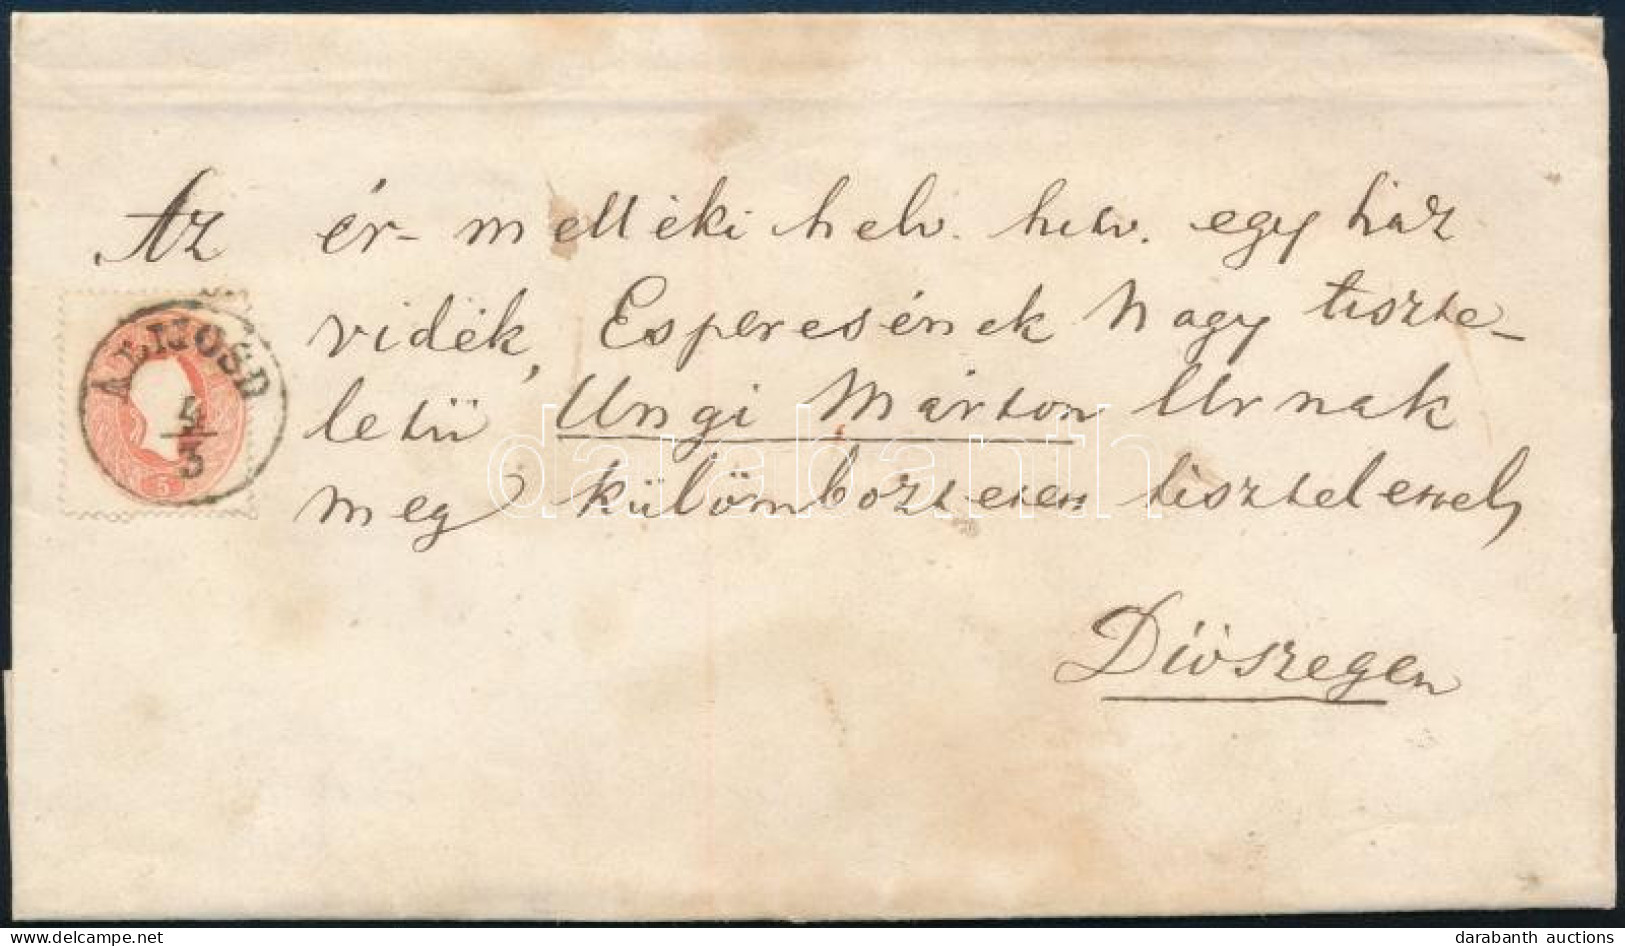 Az ér-melléki helv. hitv. egyház
vidék, Esperesének Nagy tiszte-
letü Ungi Márton Urnak
meg külömböztetett tisztelettel,
Diószegen
ALIJOSD
4
3
5
darabanth
www.delcampe.net
darabanth auctions